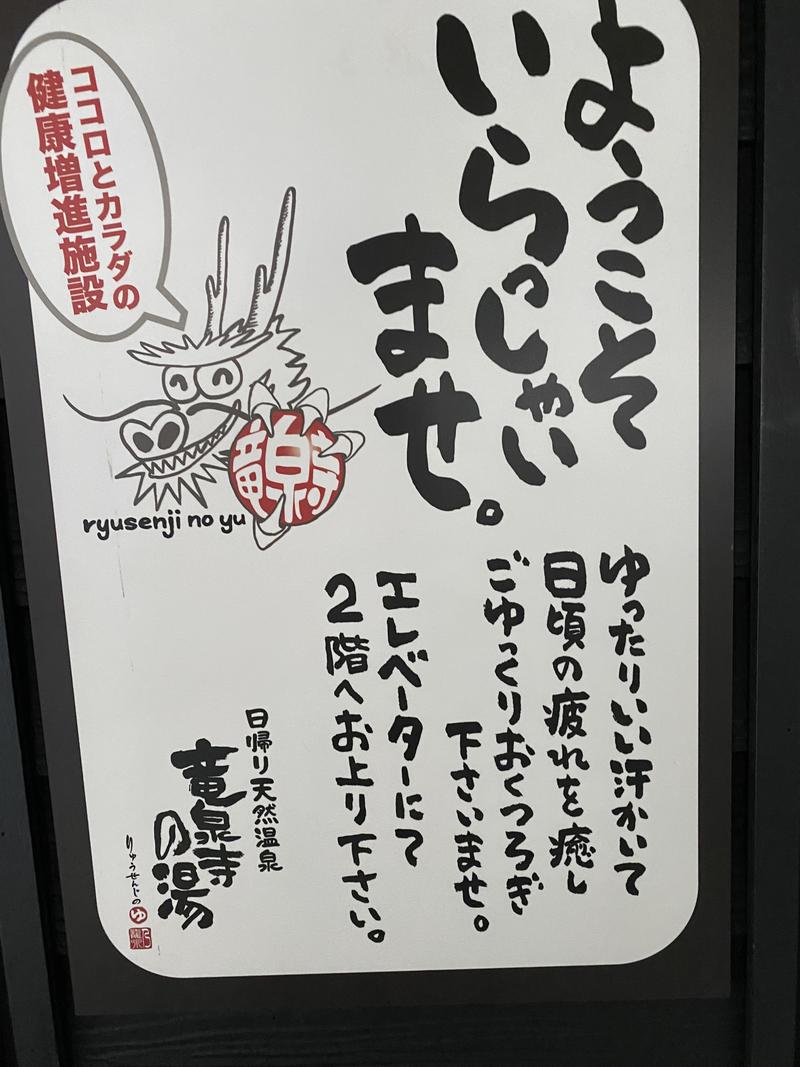 ようこそ
いらっしゃい
ませ。
ココロとカラダの
健康増進施設
竜泉寺
ryusenji no yu
ゆったりいい汗かいて
日頃の疲れを癒し
ごゆっくりおくつろぎ
下さいませ。
エレベーターにて
2階へお上り下さい。
日帰り天然温泉
竜泉寺
の湯
りゅうせんじの
ゆ